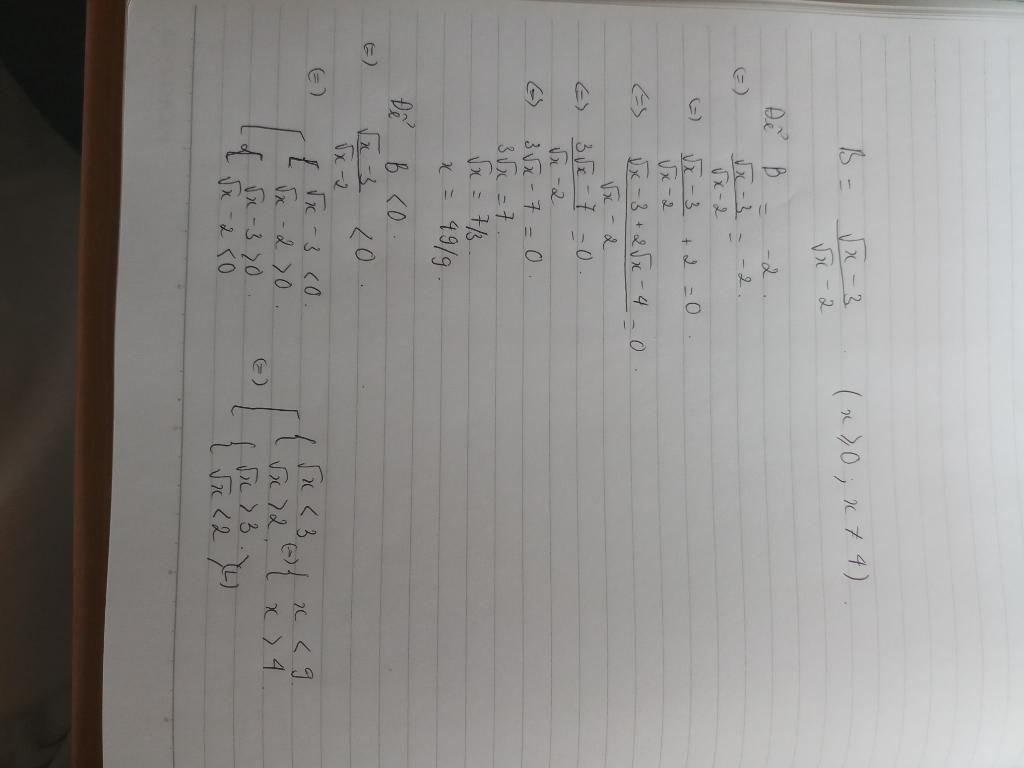 B = (√x - 3)/(√x - 2) . (x ⩾ 0 ; x ≠ 4).
Để B = -2.
(=) (√x - 3)/(√x - 2) = -2.
(=) (√x - 3)/(√x - 2) + 2 = 0.
(=) (√x - 3 + 2√x - 4)/(√x - 2) = 0
(=) (3√x - 7)/(√x - 2) = 0.
(=) 3√x - 7 = 0.
3√x = 7.
√x = 7/3.
x = 49/9.
Để B < 0.
(=) (√x - 3)/(√x - 2) < 0.
(=) [ { √x - 3 < 0. (=) [ { √x < 3 (=) { x < 9
√x - 2 > 0. √x > 2 x > 4
{ √x - 3 > 0. { √x > 3.
√x - 2 < 0 √x < 2 } (L)